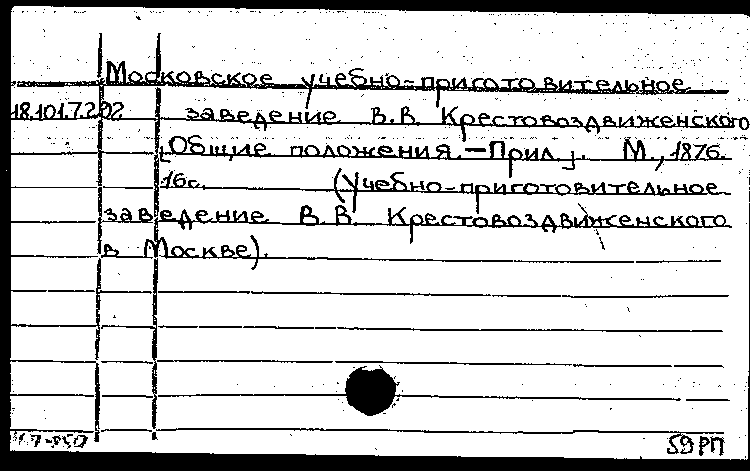 Московское учебно-приготовительное
18.101.7.202 заведение В.В. Крестовоздвиженского
[Общие положения.-Прил.]. М., 1876.
16с. (Учебно-приготовительное
заведение В.В. Крестовоздвиженского
в Москве).
59РП